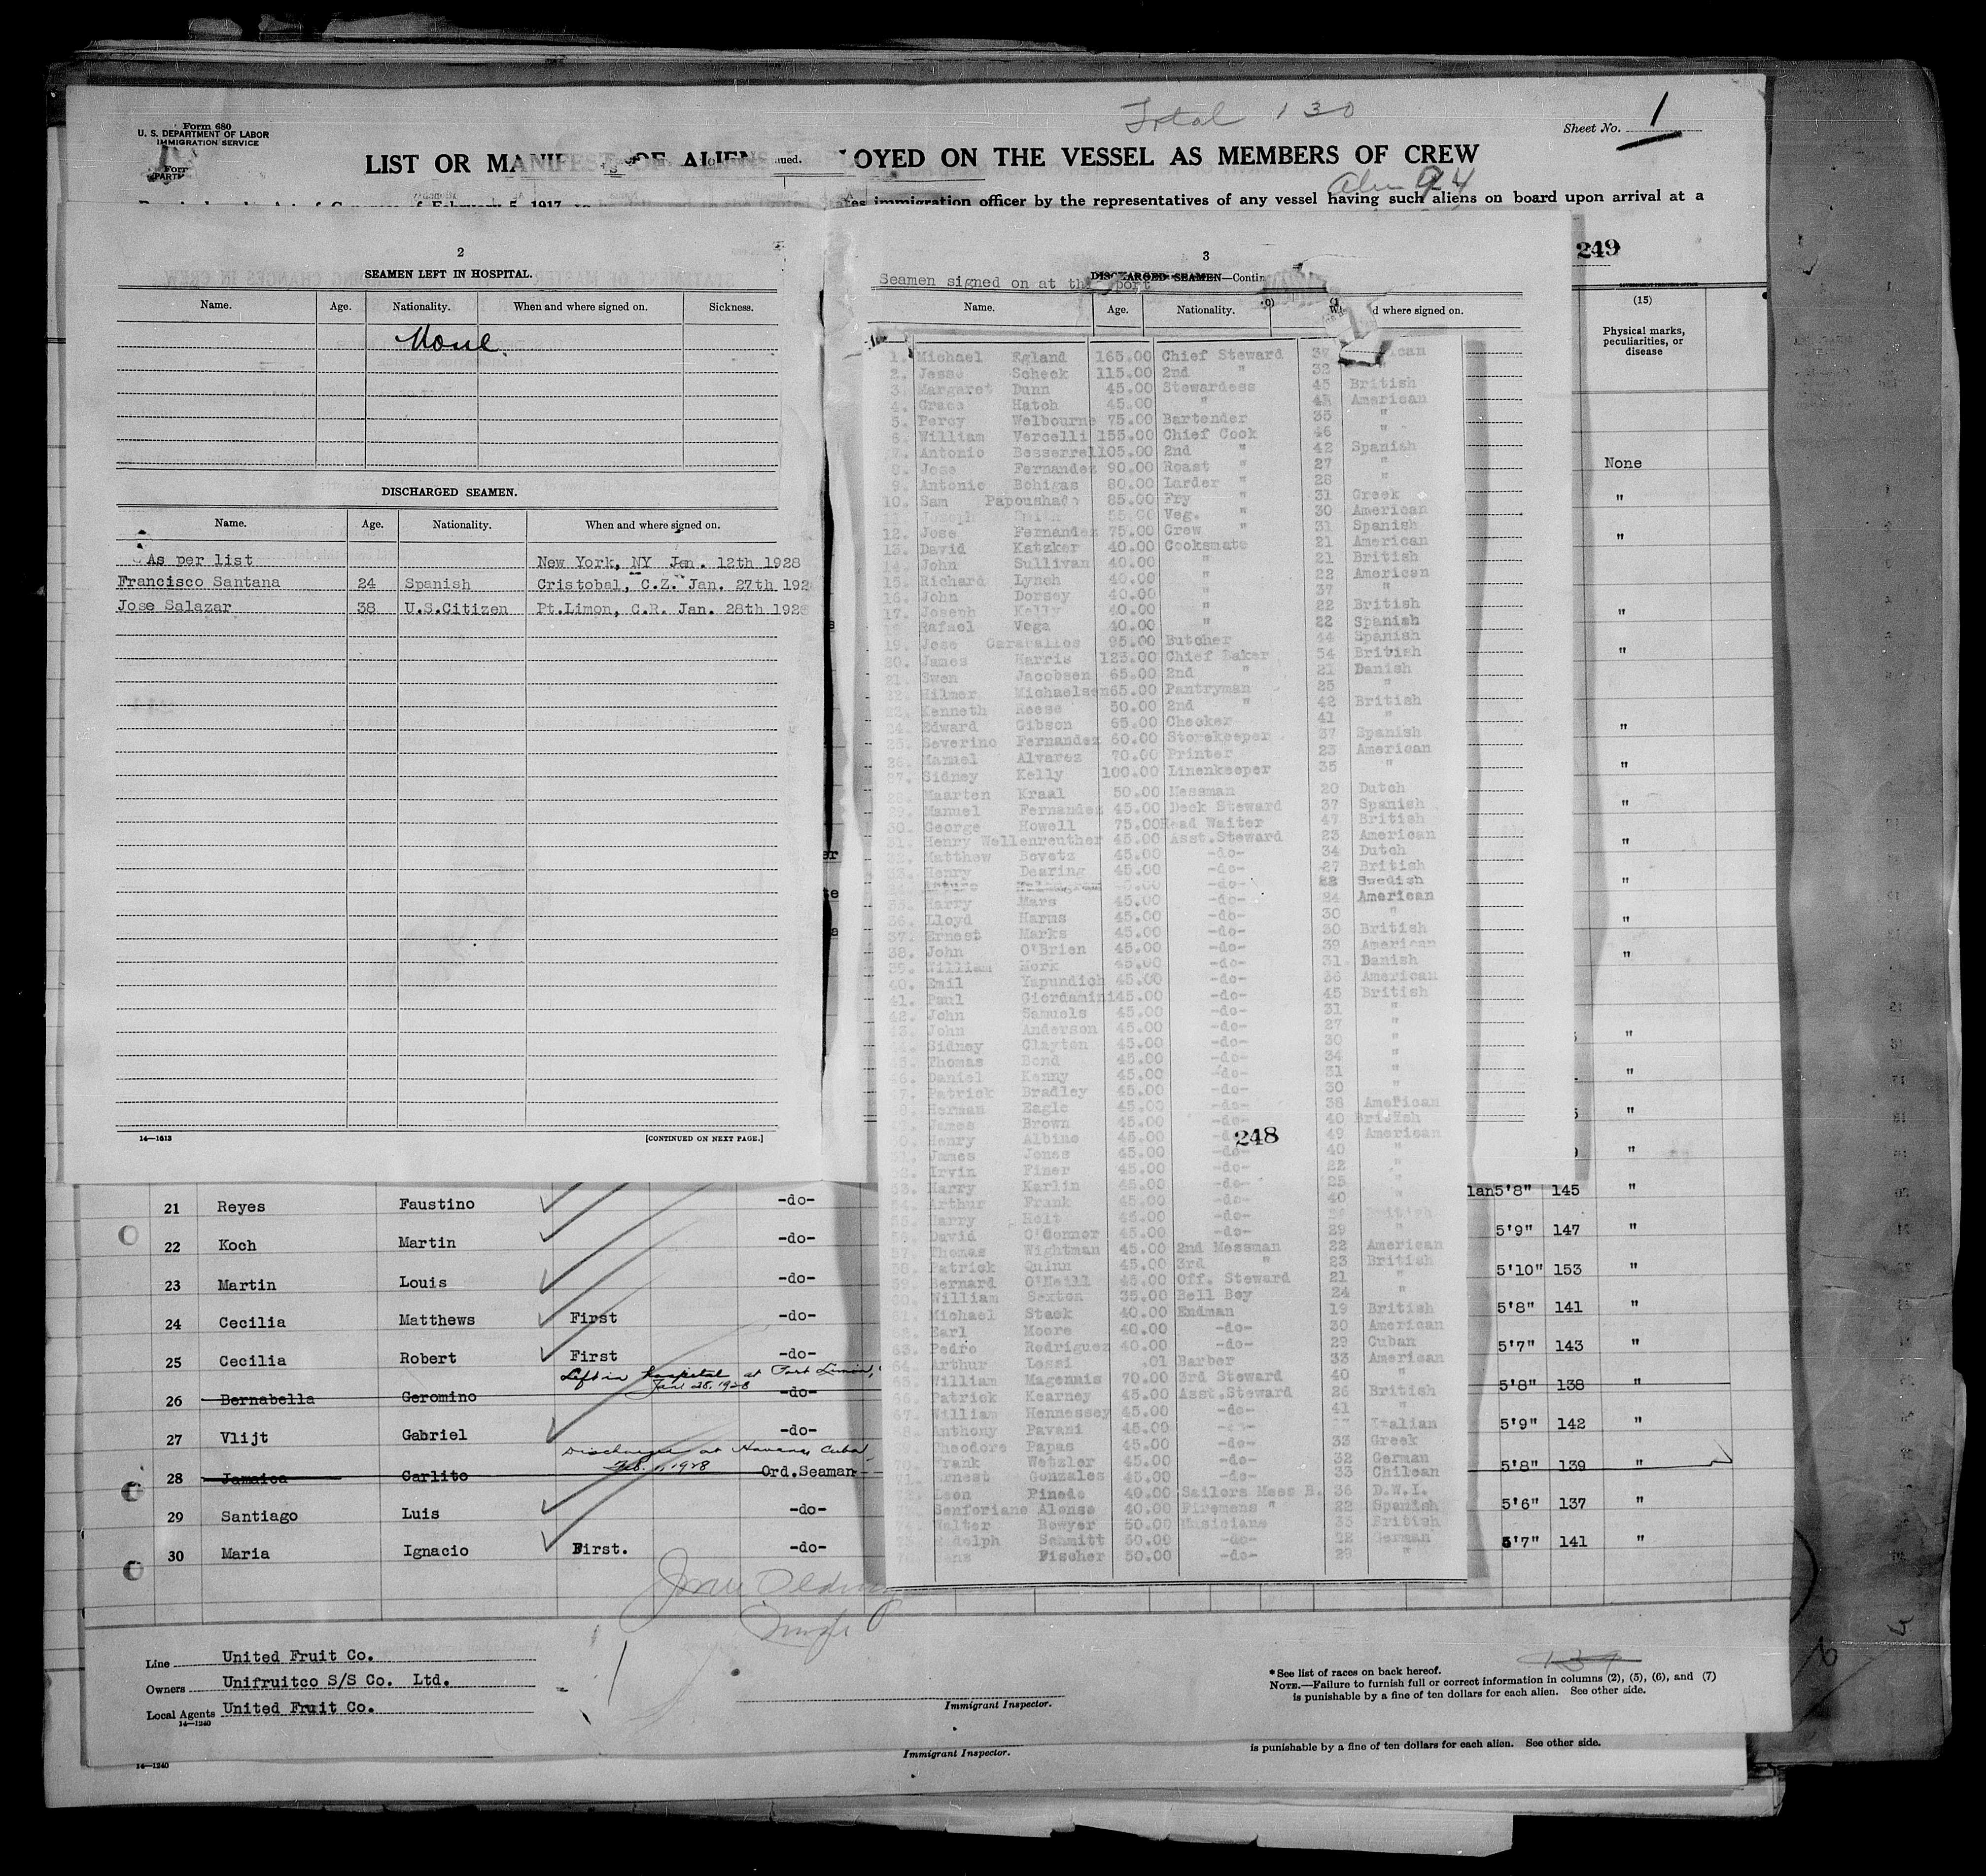 Total 130
Form 680
U. S. DEPARTMENT OF LABOR
IMMIGRATION SERVICE
Sheet No. 1
LIST OR MANIFEST OF ALIENS OYED ON THE VESSEL AS MEMBERS OF CREW
Alien 94
immigration officer by the representatives of any vessel having such aliens on board upon arrival at a
249
2
SEAMEN LEFT IN HOSPITAL.
Name. Age. Nationality. When and where signed on. Sickness.
None.
DISCHARGED SEAMEN.
Name. Age. Nationality. When and where signed on.
As per list New York, NY Jan. 12th 1928
Francisco Santana 24 Spanish Cristobal, C.Z. Jan. 27th 192
Jose Salazar 38 U.S.Citizen Pt.Limon, C.R. Jan. 28th 1928
14—1613 [CONTINUED ON NEXT PAGE.]
3
DISCHARGED SEAMEN—Contin
Seamen signed on at the port
Name. Age. Nationality. where signed on.
1. Michael Egland 165.00 Chief Steward 37
2. Jesse Scheck 115.00 2nd " 32 "
3. Margaret Dunn 45.00 Stewardess 45 British
4. Grace Hatch 45.00 " American
5. Percy Welbourne 75.00 Bartender 35 "
6. William Vercelli 155.00 Chief Cook 46 "
7. Antonio Besserrel 105.00 2nd " 42 Spanish
8. Jose Fernandez 90.00 Roast " 27 "
9. Antonio Bohigas 80.00 Larder " 28 "
10. Sam Papoushado 85.00 Fry " 31 Greek
Joseph 55.00 Veg. " 30 American
12. Jose Fernandez 75.00 Crew " 31 Spanish
13. David Katzker 40.00 Cooksmate 21 American
14. John Sullivan 40.00 " 21 British
15. Richard Lynch 40.00 " 22 American
16. John Dorsey 40.00 " 37 "
17. Joseph Kelly 40.00 " 22 British
Rafael Vega 40.00 " 22 Spanish
19. Jose Caravallos 95.00 Butcher 44 Spanish
20. James Harris 125.00 Chief Baker 54 British
21. Swen Jacobsen 65.00 2nd " 21 Danish
22. Hilmer Michaelsen 65.00 Pantryman 25 "
23. Kenneth Reese 50.00 2nd " 42 British
24. Edward Gibson 65.00 Checker 41 "
25. Severino Fernandez 60.00 Storekeeper 37 Spanish
26. Manuel Alvarez 70.00 Printer 23 American
27. Sidney Kelly 100.00 Linenkeeper 35 "
28. Maarten Kraal 50.00 Messman 20 Dutch
29. Manuel Fernandez 45.00 Deck Steward 37 Spanish
30. George Howell 75.00 Head Waiter 47 British
31. Henry Wellenreuther 45.00 Asst.Steward 23 American
32. Matthew Bevetz 45.00 -do- 34 Dutch
33. Henry Dearing 45.00 -do- 27 British
Arturo -do- 22 Swedish
35. Harry Mars 45.00 -do- 24 American
36. Lloyd Harms 45.00 -do- 30 "
37. Ernest Marks 45.00 -do- 30 British
38. John O'Brien 45.00 -do- 39 American
39. William Mork 45.00 -do- 31 Danish
40. Emil Yapundich 45.00 -do- 36 American
41. Paul Giordamini 45.00 -do- 45 British
42. John Samuels 45.00 -do- 31 "
43. John Anderson 45.00 -do- 27 "
44. Sidney Clayton 45.00 -do- 30 "
45. Thomas Bond 45.00 -do- 34 "
46. Daniel Kenny 45.00 -do- 31 "
47. Patrick Bradley 45.00 -do- 30 "
48. Herman Eagle 45.00 -do- 38 American
James Brown 45.00 -do- 40 British
50. Henry Albino 45.00 -do- 49 American
248
51. James Jones 45.00 -do- 40 "
52. Irvin Finer 45.00 -do- 22 "
53. Harry Karlin 45.00 -do- 25 "
54. Arthur Frank 45.00 -do- 40 "
55. Harry Holt 45.00 -do- British
56. David O'Connor 45.00 -do- 29 "
57. Thomas Wightman 45.00 2nd Messman 22 American
58. Patrick Quinn 45.00 3rd " 23 British
59. Bernard O'Neill 45.00 Off. Steward 21 "
60. William Sexton 35.00 Bell Boy 24 "
61. Michael Stack 40.00 Endman 19 British
62. Earl Moore 40.00 -do- 30 American
63. Pedro Rodriguez 40.00 -do- 29 Cuban
64. Arthur Lessi .01 Barber 33 American
65. William Magennis 70.00 3rd Steward 40 "
66. Patrick Kearney 45.00 Asst.Steward 26 British
67. William Hennessey 45.00 -do- 41 "
68. Anthony Pavani 45.00 -do- Italian
Theodore Papas 45.00 -do- 33 Greek
Frank Wetzler 45.00 -do- 32 German
Ernest Gonzales 45.00 -do- 33 Chilean
72. Leon Pinedo 40.00 Sailors Mess B. 36 D.W.I.
Senforiano Alonso 40.00 Firemens " 22 Spanish
Walter Bowyer 50.00 Musicians 35 British
Rudolph Schmitt 50.00 -do- 22 German
Hans Fischer 50.00 -do- 29 "
(15)
Physical marks, peculiarities, or disease
None
21 Reyes Faustino -do- 5'8" 145 "
22 Koch Martin -do- 5'9" 147 "
23 Martin Louis -do- 5'10" 153 "
24 Cecilia Matthews First -do- 5'8" 141 "
25 Cecilia Robert First -do- 5'7" 143 "
Left in hospital at Port Limon,
Jan. 28, 1928
26 Bernabella Geromino -do- 5'8" 138 "
27 Vlijt Gabriel -do- 5'9" 142 "
Discharged at Havana, Cuba
Feb. 1, 1928
28 Jamaica Carlito Ord.Seaman 5'8" 139 "
29 Santiago Luis -do- 5'6" 137 "
30 Maria Ignacio First. -do- 5'7" 141 "
Line United Fruit Co.
Owners Unifruitco S/S Co. Ltd.
Local Agents United Fruit Co.
14—1240
Immigrant Inspector.
*See list of races on back hereof.
NOTE.—Failure to furnish full or correct information in columns (2), (5), (6), and (7)
is punishable by a fine of ten dollars for each alien. See other side.
14—1240
Immigrant Inspector.
is punishable by a fine of ten dollars for each alien. See other side.